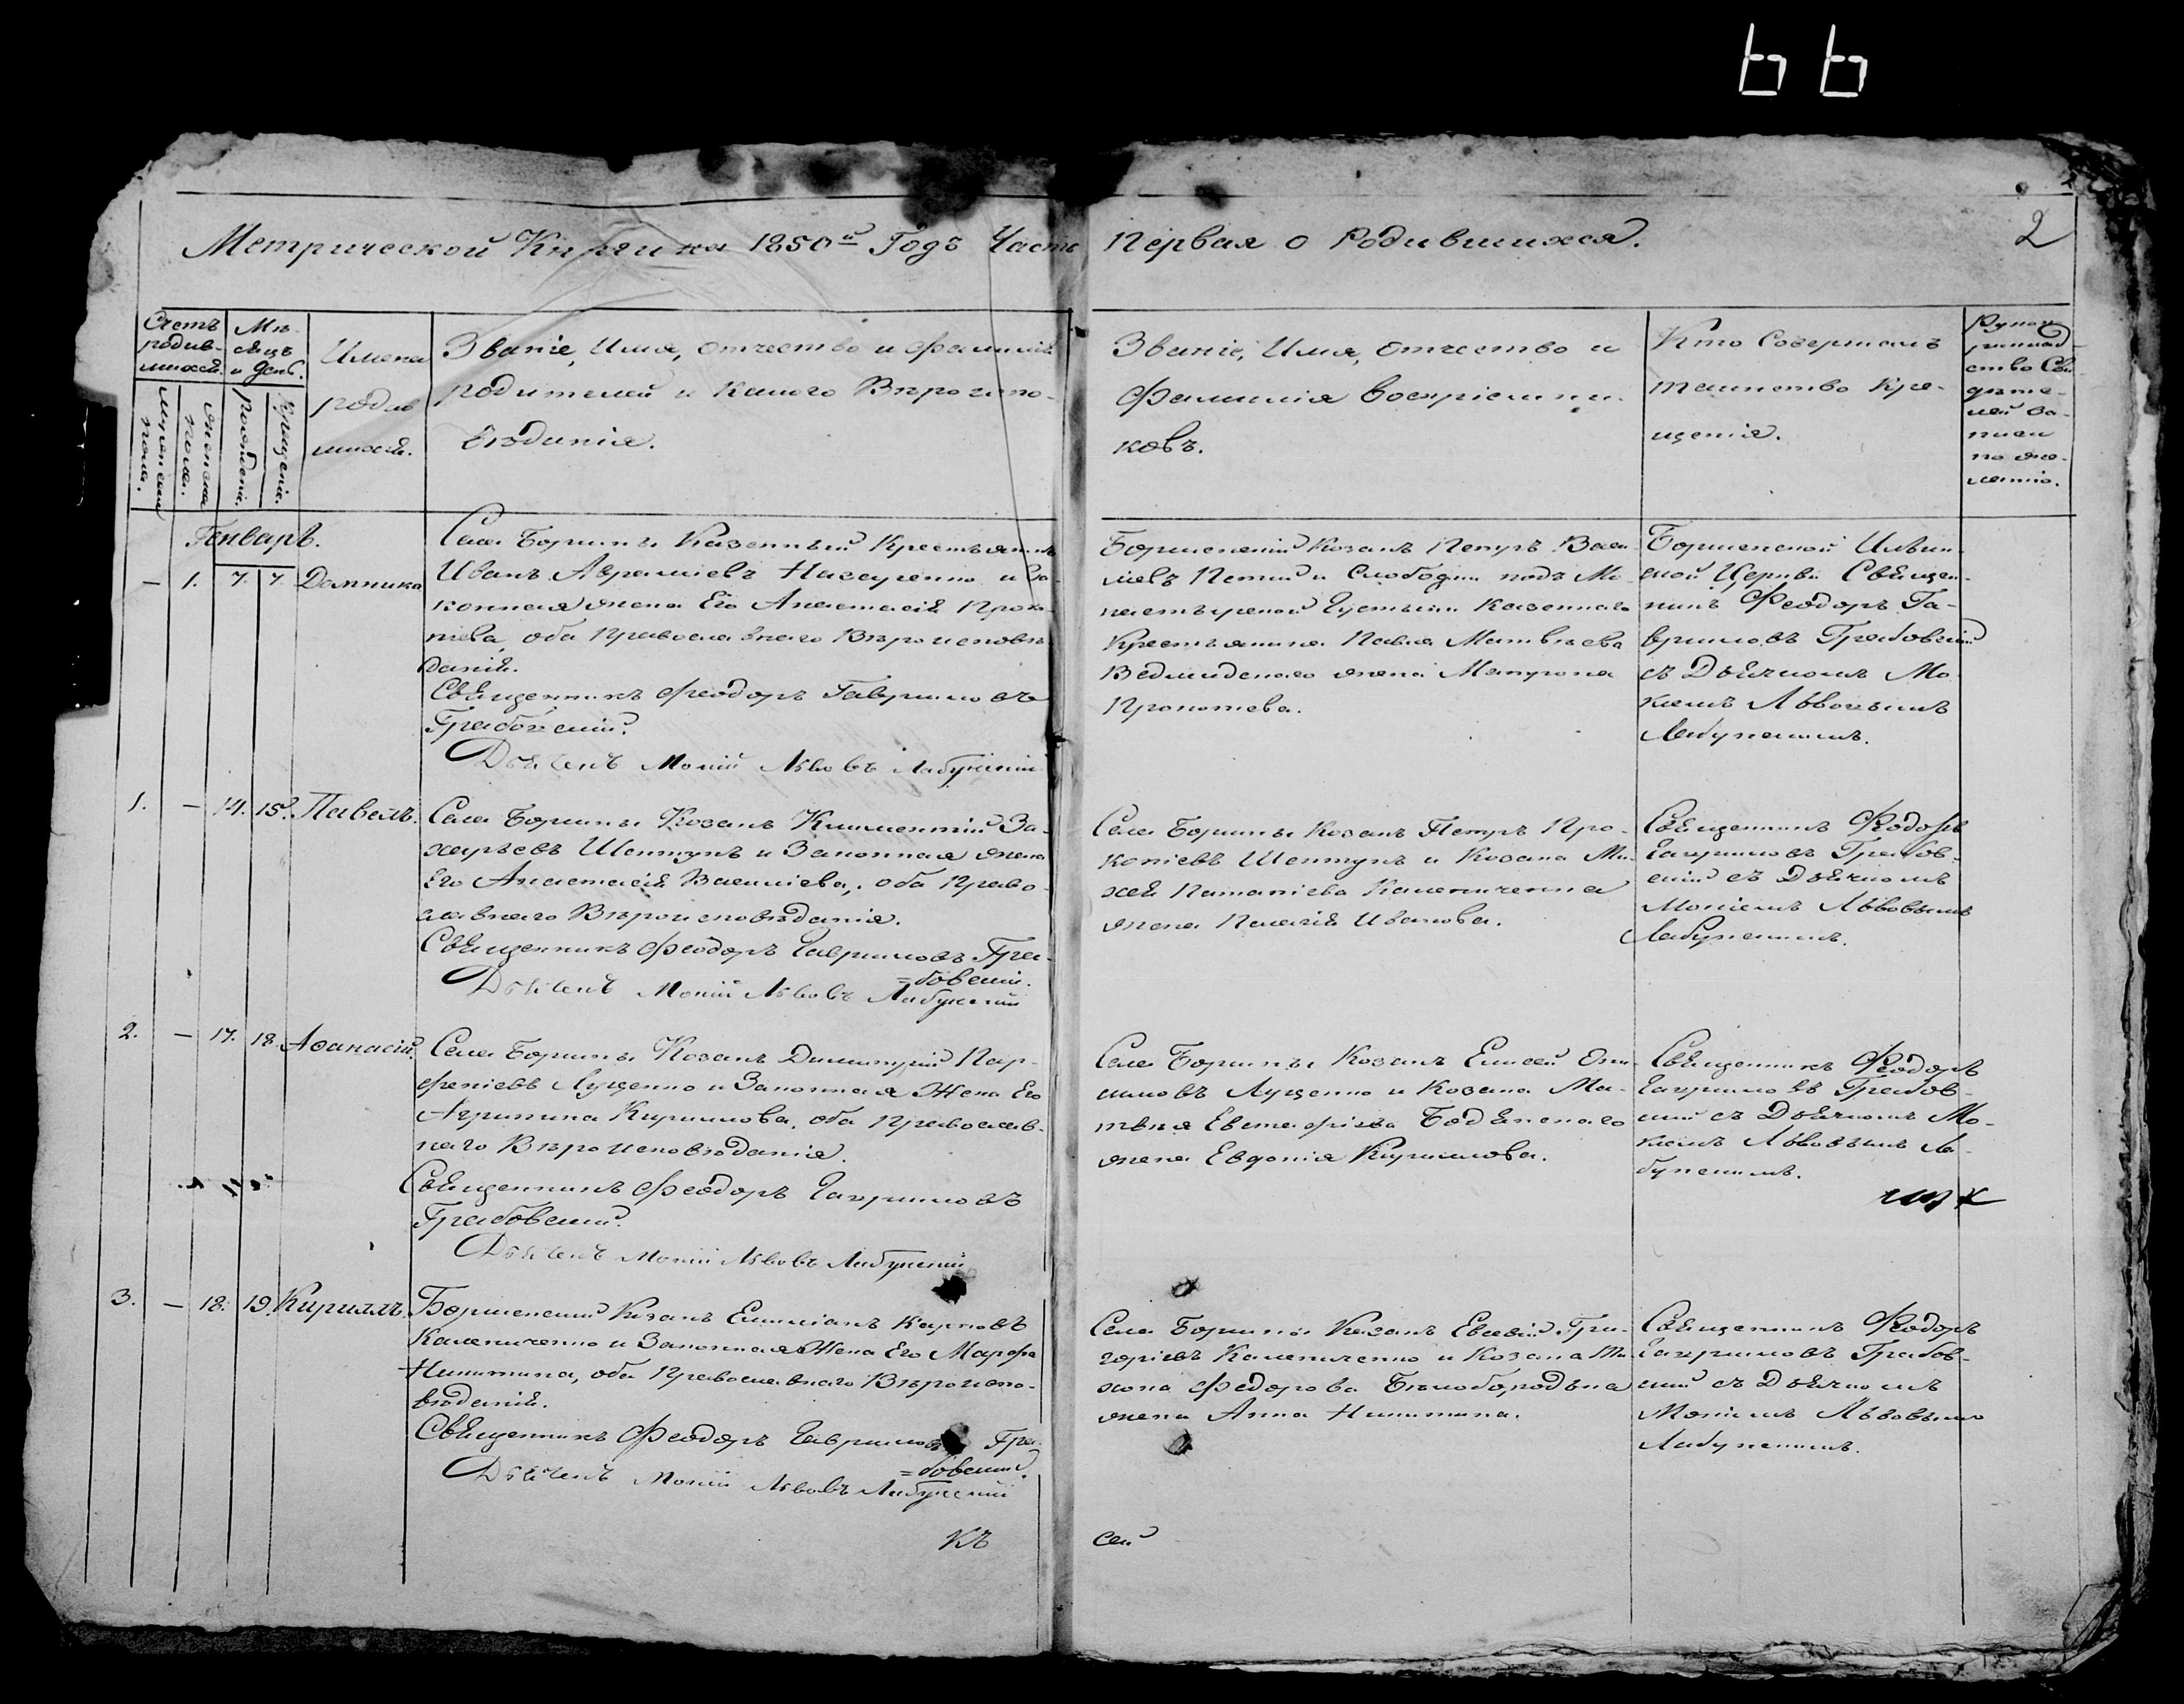 66
Метрической Книги на 1850й Годъ Часть Первая о Родившихся.
2
Счетъ родив-шихся.
Мужеска пола.
Женска пола.
Мѣ-сяцъ и День.
рожденія.
Крещенія.
Имена родив шихся.
Званіе, Имя, Отчество и Фамилія
родителей и какого Вѣроиспо-
вѣданія.
Званіе, Имя, Отчество и
Фамилія Воспріемни-
ковъ.
Кто Совершалъ
таинство Кре-
щенія.
Рукоп
рикклад
ство Сви
дѣте-
лей За-
писи
по же-
ланію.
Генварь.
— 1. 7. 7. Домника
Села Боршны Казенный Крестьянинъ
Иванъ Авраміевъ Назаренко и За-
конная жена Его Анастасія Проко-
піева, оба Православнаго Вѣроисповѣ
данія.
Священникъ Феодоръ Гавриловъ
Грабовскій.
Дьячекъ Мокій Львовъ Лабунскій
Боршенскій Козакъ Петръ Васи-
ліевъ и Слободки подъ Мо-
настырской Густыни Казеннаго
Крестьянина Павла Матвѣева
Ведмидскаго жена Матрона
Прокопіева.
Боршенской Ильин-
ской Церкви Священ-
никъ Феодоръ Га-
вриловъ Грабовскій
съ Дьячкомъ Мо-
кіемъ Львовымъ
Лабунскимъ.
1. — 14. 15. Павелъ.
Села Боршны Козакъ Климентій За-
харьевъ Шептунъ и Законная жена
Его Анастасія Василіева, оба Право-
славнаго Вѣроисповѣданія.
Священникъ Феодоръ Гавриловъ Гра-
=бовскій.
Дьячекъ Мокій Львовъ Лабунскій
Села Боршны Козакъ Петръ Про-
копіевъ Шептунъ и Козака Ми-
хея Потапіева Калениченка
жена Пелагія Иванова.
Священникъ Феодоръ
Гавриловъ Грабов-
скій съ Дьячкомъ
Мокіемъ Львовымъ
Лабунскимъ.
2. — 17. 18. Аѳанасій.
Села Боршны Козакъ Димитрій Пар-
феніевъ Луценко и Законная Жена Его
Агрипина Кирилова, оба Православ-
наго Вѣроисповѣданія.
Священникъ Феодоръ Гавриловъ
Грабовскій.
Дьячекъ Мокій Львовъ Лабунскій
Села Боршны Козакъ Елисей Они-
симовъ Луценко и Козака Ма-
твѣя Евстафіева Бодянскаго
жена Евдокія Кирилова.
Священникъ Феодоръ
Гавриловъ Грабов-
скій съ Дьячкомъ Мо-
кіемъ Львовымъ Ла-
бунскимъ.
3. — 18. 19. Кириллъ.
Боршенскій Козакъ Емиліанъ Карповъ
Калениченко и Законная Жена Его Марфа
Никитина, оба Православнаго Вѣроиспо-
вѣданія.
Священникъ Феодоръ Гавриловъ Гра-
=бовскій.
Дьячекъ Мокій Львовъ Лабунскій
Села Боршны Козакъ Евсевій Гри-
горіевъ Калениченко и Козака Ти-
хона Федорова Бѣлобородька
жена Анна Никитина.
Священникъ Феодоръ
Гавриловъ Грабов-
скій съ Дьячкомъ
Мокіемъ Львовымъ
Лабунскимъ.
Къ
сей